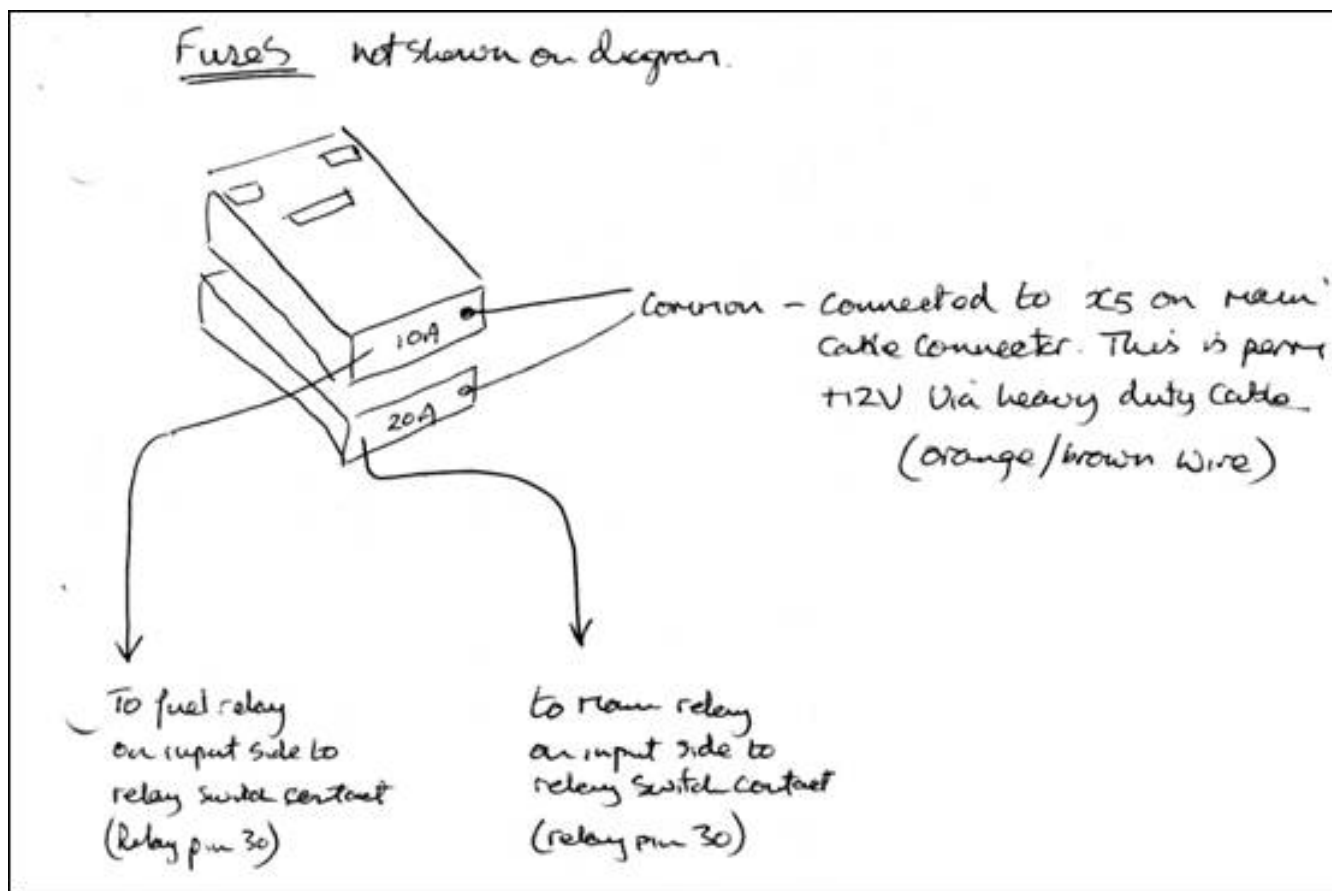 Fuses not shown on diagram.
10A
20A
Common - Connected to x5 on main
Cable Connector. This is perm
+12V Via heavy duty Cable
(orange/brown wire)
To fuel relay
on input side to
relay switch contact
(Relay pin 30)
to main relay
on input side to
relay switch contact
(relay pin 30)